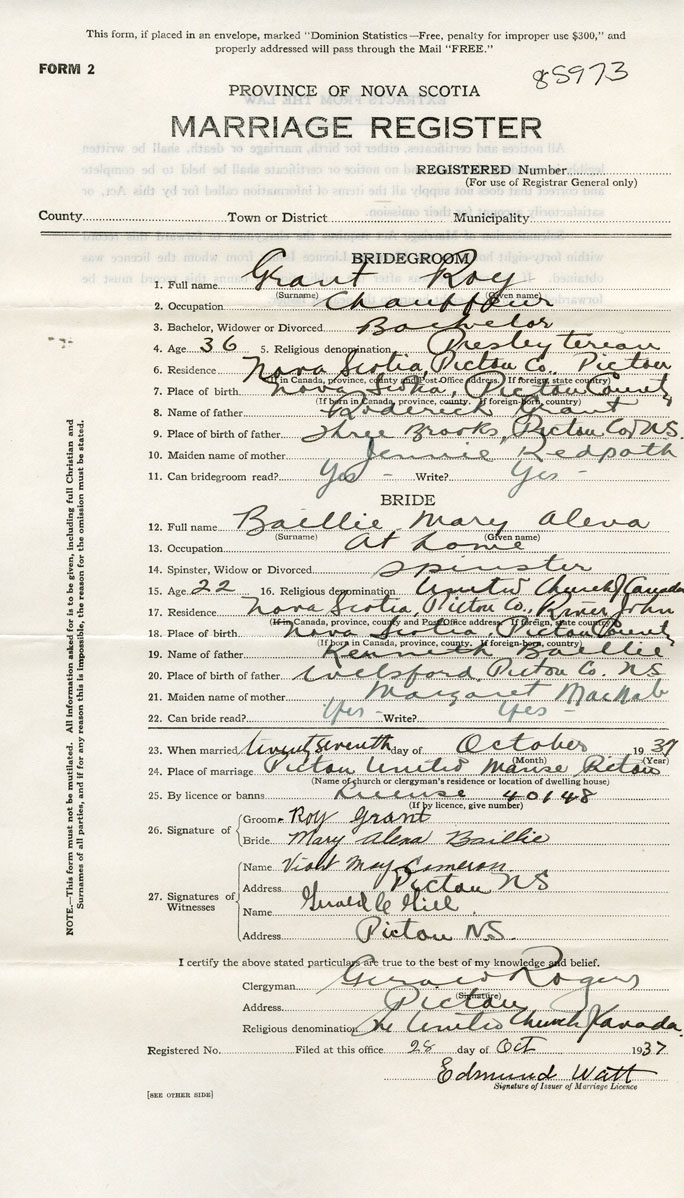 This form, if placed in an envelope, marked "Dominion Statistics—Free, penalty for improper use $300," and
properly addressed will pass through the Mail "FREE."
FORM 2
85973
PROVINCE OF NOVA SCOTIA
MARRIAGE REGISTER
REGISTERED Number
(For use of Registrar General only)
County Town or District Municipality
BRIDEGROOM
1. Full name Grant Roy
(Surname) (Given name)
2. Occupation Chauffeur
3. Bachelor, Widower or Divorced Bachelor
4. Age 36 5. Religious denomination Presbyterian
6. Residence Nova Scotia, Pictou Co. Pictou
(If in Canada, province, county and Post Office address. If foreign, state country)
7. Place of birth Nova Scotia, Pictou County
(If born in Canada, province, county. If foreign-born, country)
8. Name of father Roderick Grant
9. Place of birth of father Three Brooks, Pictou Co. N.S.
10. Maiden name of mother Jennie Redpath
11. Can bridegroom read? Yes - Write? Yes -
BRIDE
12. Full name Baillie Mary Alena
(Surname) (Given name)
13. Occupation At home
14. Spinster, Widow or Divorced Spinster
15. Age 22 16. Religious denomination United Church Canada
17. Residence Nova Scotia, Pictou Co., River John
(If in Canada, province, county and Post Office address. If foreign, state country)
18. Place of birth Nova Scotia, Pictou County
(If born in Canada, province, county. If foreign-born, country)
19. Name of father Kenneth Baillie
20. Place of birth of father Welsford, Pictou Co. N.S
21. Maiden name of mother Margaret MacNab
22. Can bride read? Yes - Write? Yes -
23. When married twenty seventh day of October 1937
(Month) (Year)
24. Place of marriage Pictou United Manse Pictou
(Name of church or clergyman's residence or location of dwelling house)
25. By licence or banns License 40148
(If by licence, give number)
26. Signature of
Groom Roy Grant
Bride Mary Alena Baillie
27. Signatures of Witnesses
Name Violet May Cameron
Address Pictou NS
Name Gerald C Gill
Address Pictou N.S.
I certify the above stated particulars are true to the best of my knowledge and belief.
Clergyman Gerald Rogers
(Signature)
Address Pictou
Religious denomination The United Church Canada.
Registered No. Filed at this office 28 day of Oct 1937
Edmund Watt
Signature of Issuer of Marriage Licence
[SEE OTHER SIDE]
NOTE.—This form must not be mutilated. All information asked for is to be given, including full Christian and
Surnames of all parties, and if for any reason this is impossible, the reason for the omission must be stated.